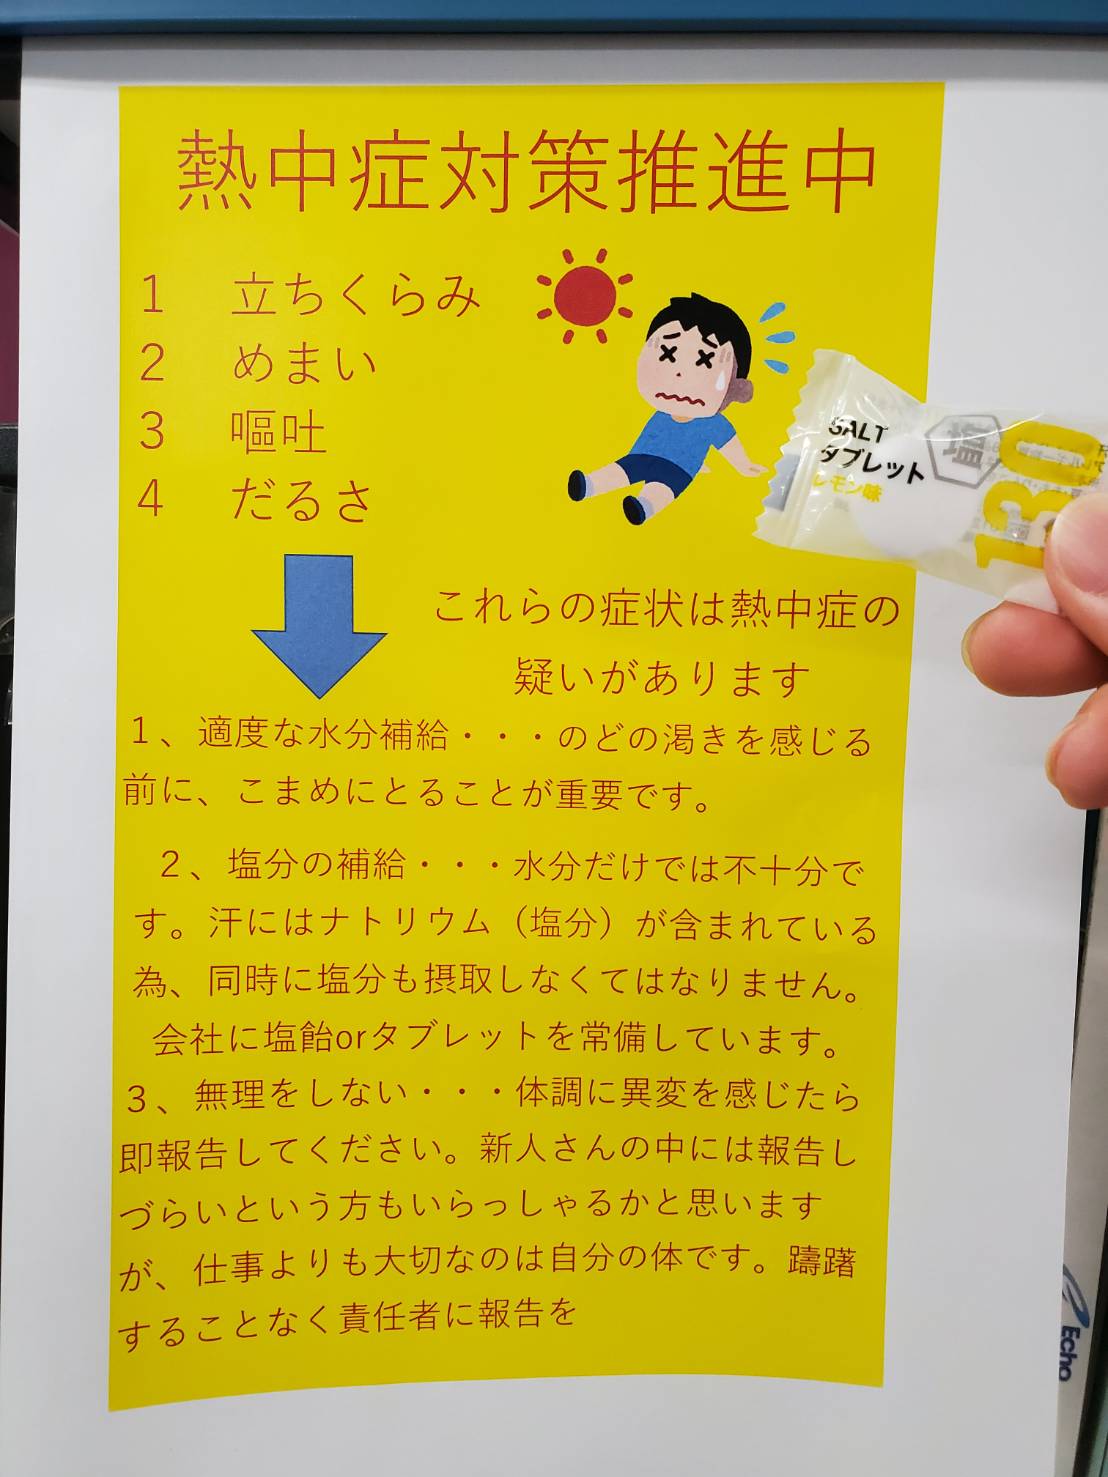 熱中症対策推進中
1 立ちくらみ
2 めまい
3 嘔吐
4 だるさ
これらの症状は熱中症の
疑いがあります
1、適度な水分補給・・・のどの渇きを感じる
前に、こまめにとることが重要です。
2、塩分の補給・・・水分だけでは不十分で
す。汗にはナトリウム（塩分）が含まれている
為、同時に塩分も摂取しなくてはなりません。
会社に塩飴orタブレットを常備しています。
3、無理をしない・・・体調に異変を感じたら
即報告してください。新人さんの中には報告し
づらいという方もいらっしゃるかと思います
が、仕事よりも大切なのは自分の体です。躊躇
することなく責任者に報告を
SALT
タブレット
レモン味
塩
130
Echo